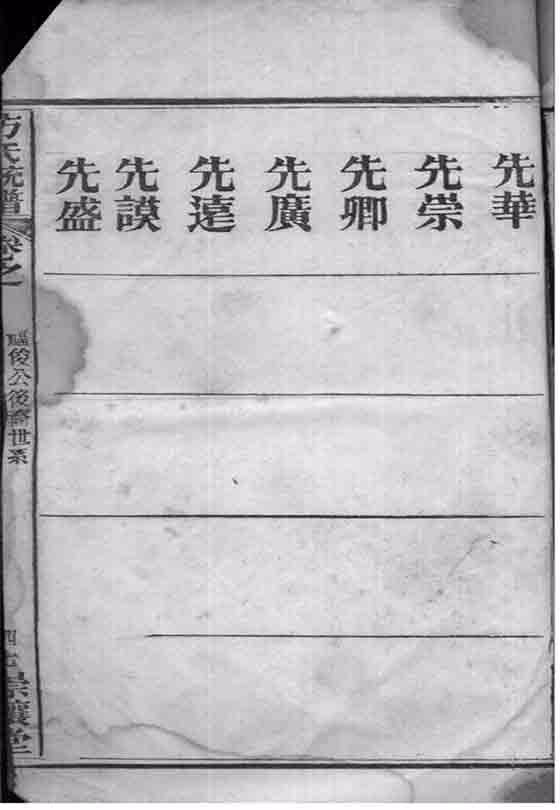 先華
先崇
先卿
先廣
先遠
先謨
先盛
方氏統譜
卷之
俊公後裔世系
四七
崇讓堂